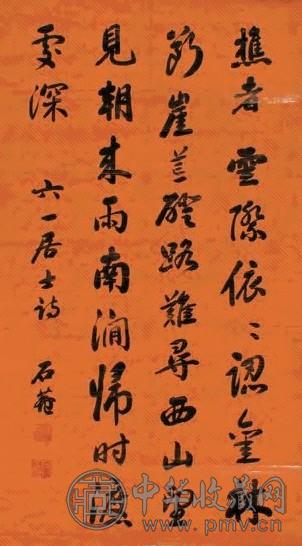 樵者雲際依〻認舊林
斷崖荒磴路難尋西山望
見朝来雨南澗歸时渡
處深 六一居士詩 石菴
中华收藏网
www.pmv.cn